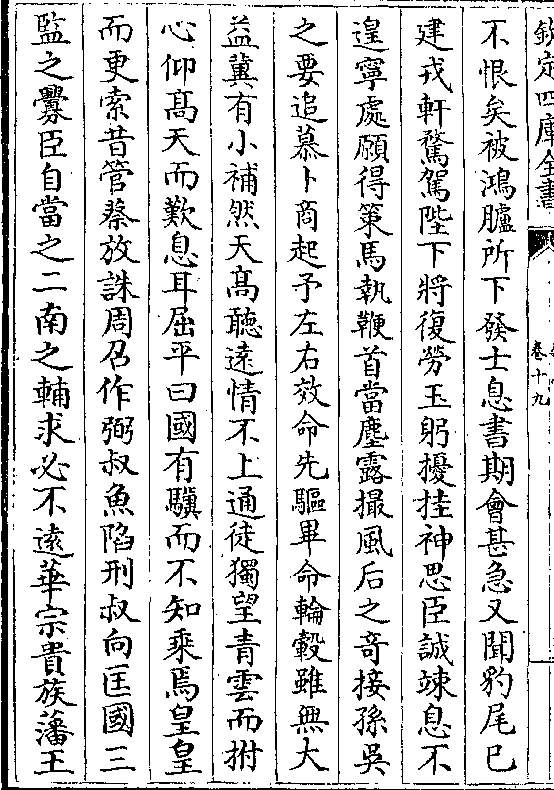 欽定四庫全書
卷十九
不恨矣被鴻臚所下發士息書期會甚急又聞豹尾已
建戎軒騖駕陛下將復勞玉躬擾挂神思臣誠竦息不
遑寧處願得策馬執鞭首當塵露撮風后之竒接孫吳
之要追慕卜商起予左右效命先驅畢命輪轂雖無大
益冀有小補然天髙聽逺情不上通徒獨望青雲而拊
心仰髙天而歎息耳屈平曰國有驥而不知乗焉皇皇
而更索昔管蔡放誅周召作弼叔魚陷刑叔向匡國三
監之釁臣自當之二南之輔求必不逺華宗貴族藩王